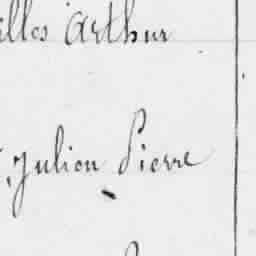 illes Arthur
Julien Pierre